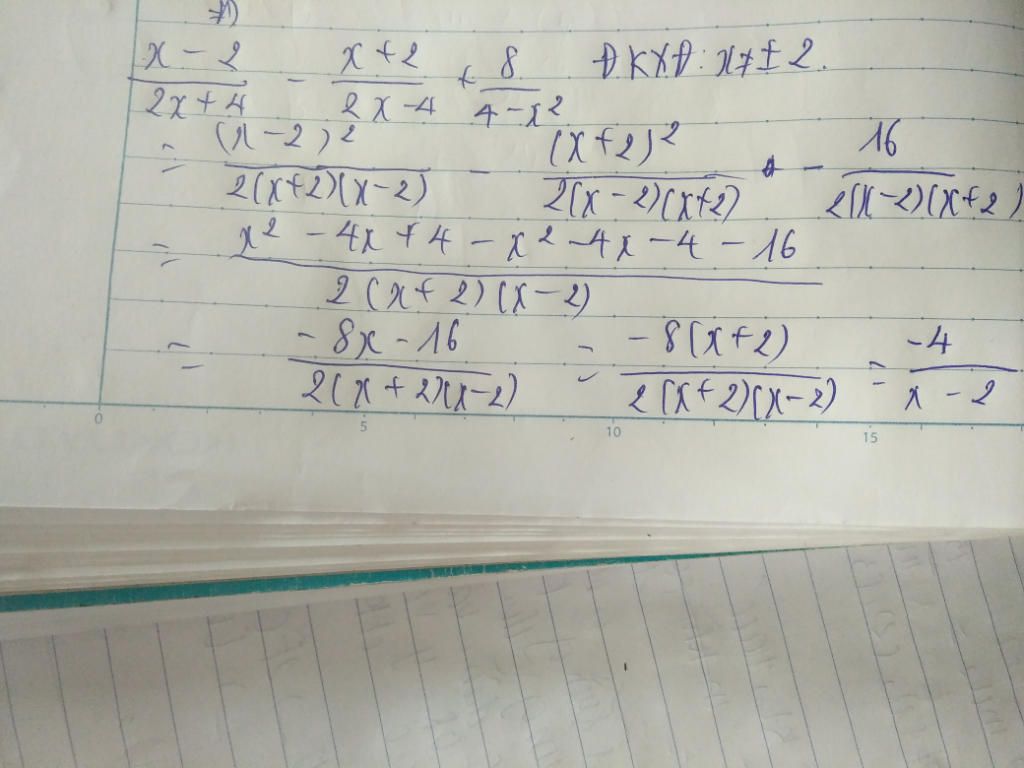 \frac{x-2}{2x+4} - \frac{x+2}{2x-4} + \frac{8}{4-x^2} ĐKXĐ: x ≠ ± 2.
= \frac{(x-2)^2}{2(x+2)(x-2)} - \frac{(x+2)^2}{2(x-2)(x+2)} - \frac{16}{2(x-2)(x+2)}
= \frac{x^2 - 4x + 4 - x^2 - 4x - 4 - 16}{2(x+2)(x-2)}
= \frac{-8x - 16}{2(x+2)(x-2)} = \frac{-8(x+2)}{2(x+2)(x-2)} = \frac{-4}{x-2}
0 5 10 15